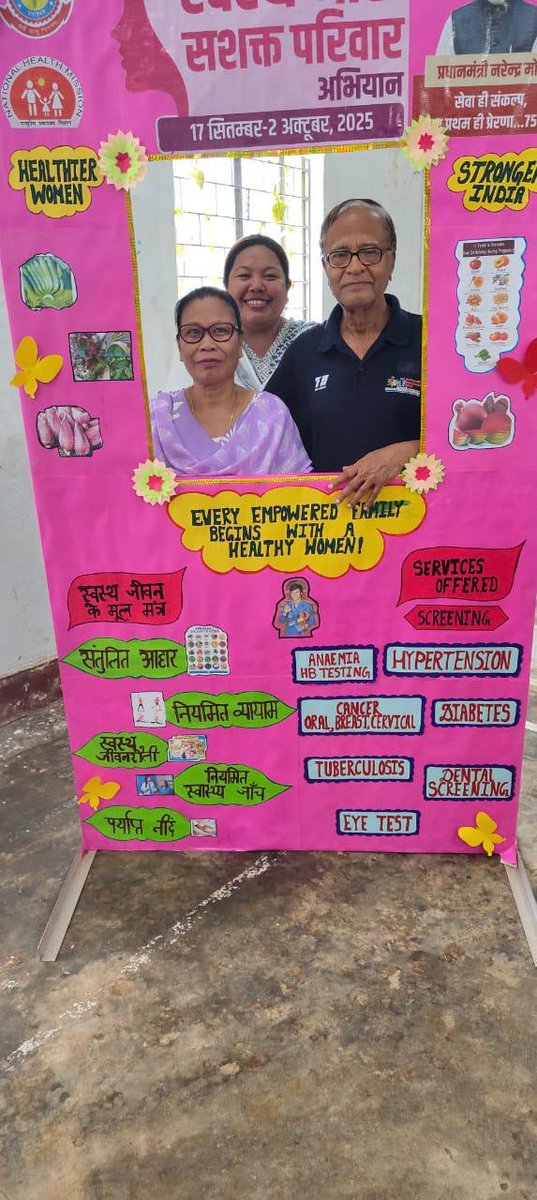 स्वस्थ नारी
सशक्त परिवार
अभियान
17 सितम्बर-2 अक्टूबर, 2025
NATIONAL HEALTH MISSION
राष्ट्रीय स्वास्थ्य मिशन
प्रधानमंत्री नरेन्द्र
सेवा ही संकल्प,
प्रथम ही प्रेरणा...75
HEALTHIER
WOMEN
STRONGER
INDIA
EVERY EMPOWERED FAMILY
BEGINS WITH A
HEALTHY WOMEN!
स्वस्थ जीवन
के मूल मंत्र
संतुलित आहार
नियमित व्यायाम
स्वस्थ
जीवनशैली
नियमित
स्वास्थ्य जाँच
पर्याप्त नींद
SERVICES
OFFERED
SCREENING
ANAEMIA
HB TESTING
HYPERTENSION
CANCER
ORAL, BREAST, CERVICAL
DIABETES
TUBERCULOSIS
DENTAL
SCREENING
EYE TEST